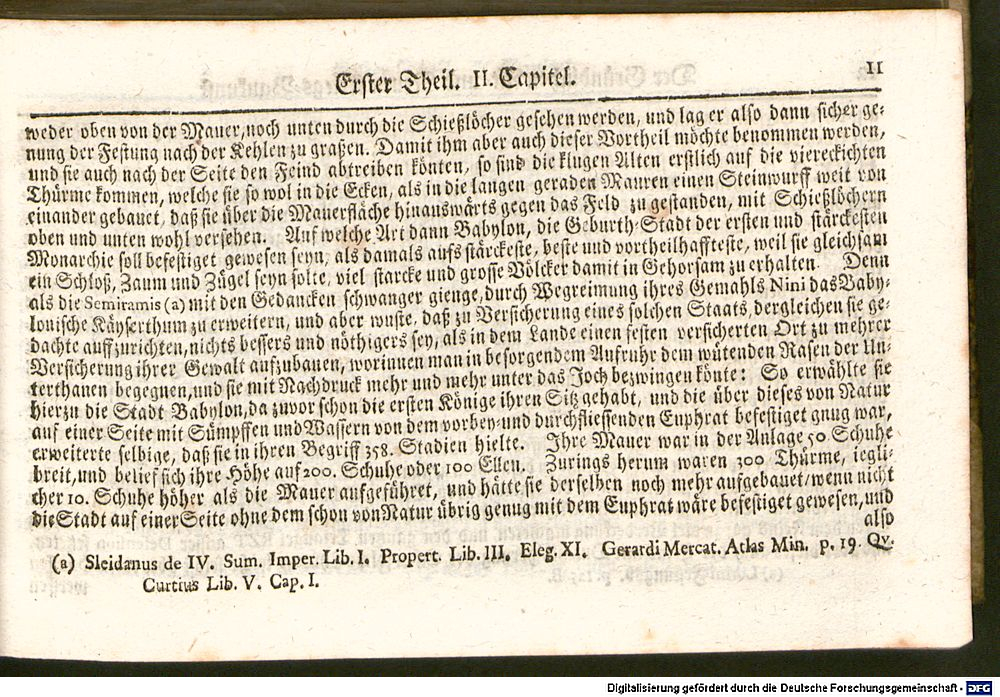 Erster Theil. II. Capitel.
11
weder oben von der Mauer, noch unten durch die Schießlöcher gesehen werden, und lag er also dann sicher ge-
nung der Festung nach der Kehlen zu graßen. Damit ihm aber auch dieser Vortheil möchte benommen werden,
und sie auch nach der Seite den Feind abtreiben könten, so sind die klugen Alten erstlich auf die viereckichten
Thürme kommen, welche sie so wol in die Ecken, als in die langen geraden Mauren einen Steinwurff weit von
einander gebauet, daß sie über die Mauerfläche hinauswärts gegen das Feld zu gestanden, mit Schießlöchern
oben und unten wohl versehen. Auf welche Art dann Babylon, die Geburth-Stadt der ersten und stärckesten
Monarchie soll befestiget gewesen seyn, als damals aufs stärckeste, beste und vortheilhaffteste, weil sie gleichsam
ein Schloß, Zaum und Zügel seyn solte, viel starcke und grosse Völcker damit in Gehorsam zu erhalten. Denn
als die Semiramis (a) mit den Gedancken schwanger gienge, durch Wegreimung ihres Gemahls Nini das Baby-
lonische Käyserthum zu erweitern, und aber wuste, daß zu Versicherung eines solchen Staats, dergleichen sie ge-
dachte auffzurichten, nichts bessers und nöthigers sey, als in dem Lande einen festen versicherten Ort zu mehrer
Versicherung ihrer Gewalt aufzubauen, worinnen man in besorgendem Aufruhr dem wütenden Rasen der Un-
terthanen begegnen, und sie mit Nachdruck mehr und mehr unter das Joch bezwingen könte: So erwählte sie
hierzu die Stadt Babylon, da zuvor schon die ersten Könige ihren Sitz gehabt, und die über dieses von Natur
auf einer Seite mit Sümpffen und Wassern von dem vorbey- und durchfliessenden Euphrat befestiget gnug war,
erweiterte selbige, daß sie in ihren Begriff 358. Stadien hielte. Ihre Mauer war in der Anlage 50 Schuhe
breit, und belief sich ihre Höhe auf 200. Schuhe oder 100 Ellen. Zurings herum waren 300 Thürme, iegli-
cher 10. Schuhe höher als die Mauer aufgeführet, und hätte sie derselben noch mehr aufgebauet / wenn nicht
die Stadt auf einer Seite ohne dem schon von Natur übrig genug mit dem Euphrat wäre befestiget gewesen, und
also
(a) Sleidanus de IV. Sum. Imper. Lib. I. Propert. Lib. III. Eleg. XI. Gerardi Mercat. Atlas Min. p. 19 Qv.
Curtius Lib. V. Cap. I.
Digitalisierung gefördert durch die Deutsche Forschungsgemeinschaft - DFG